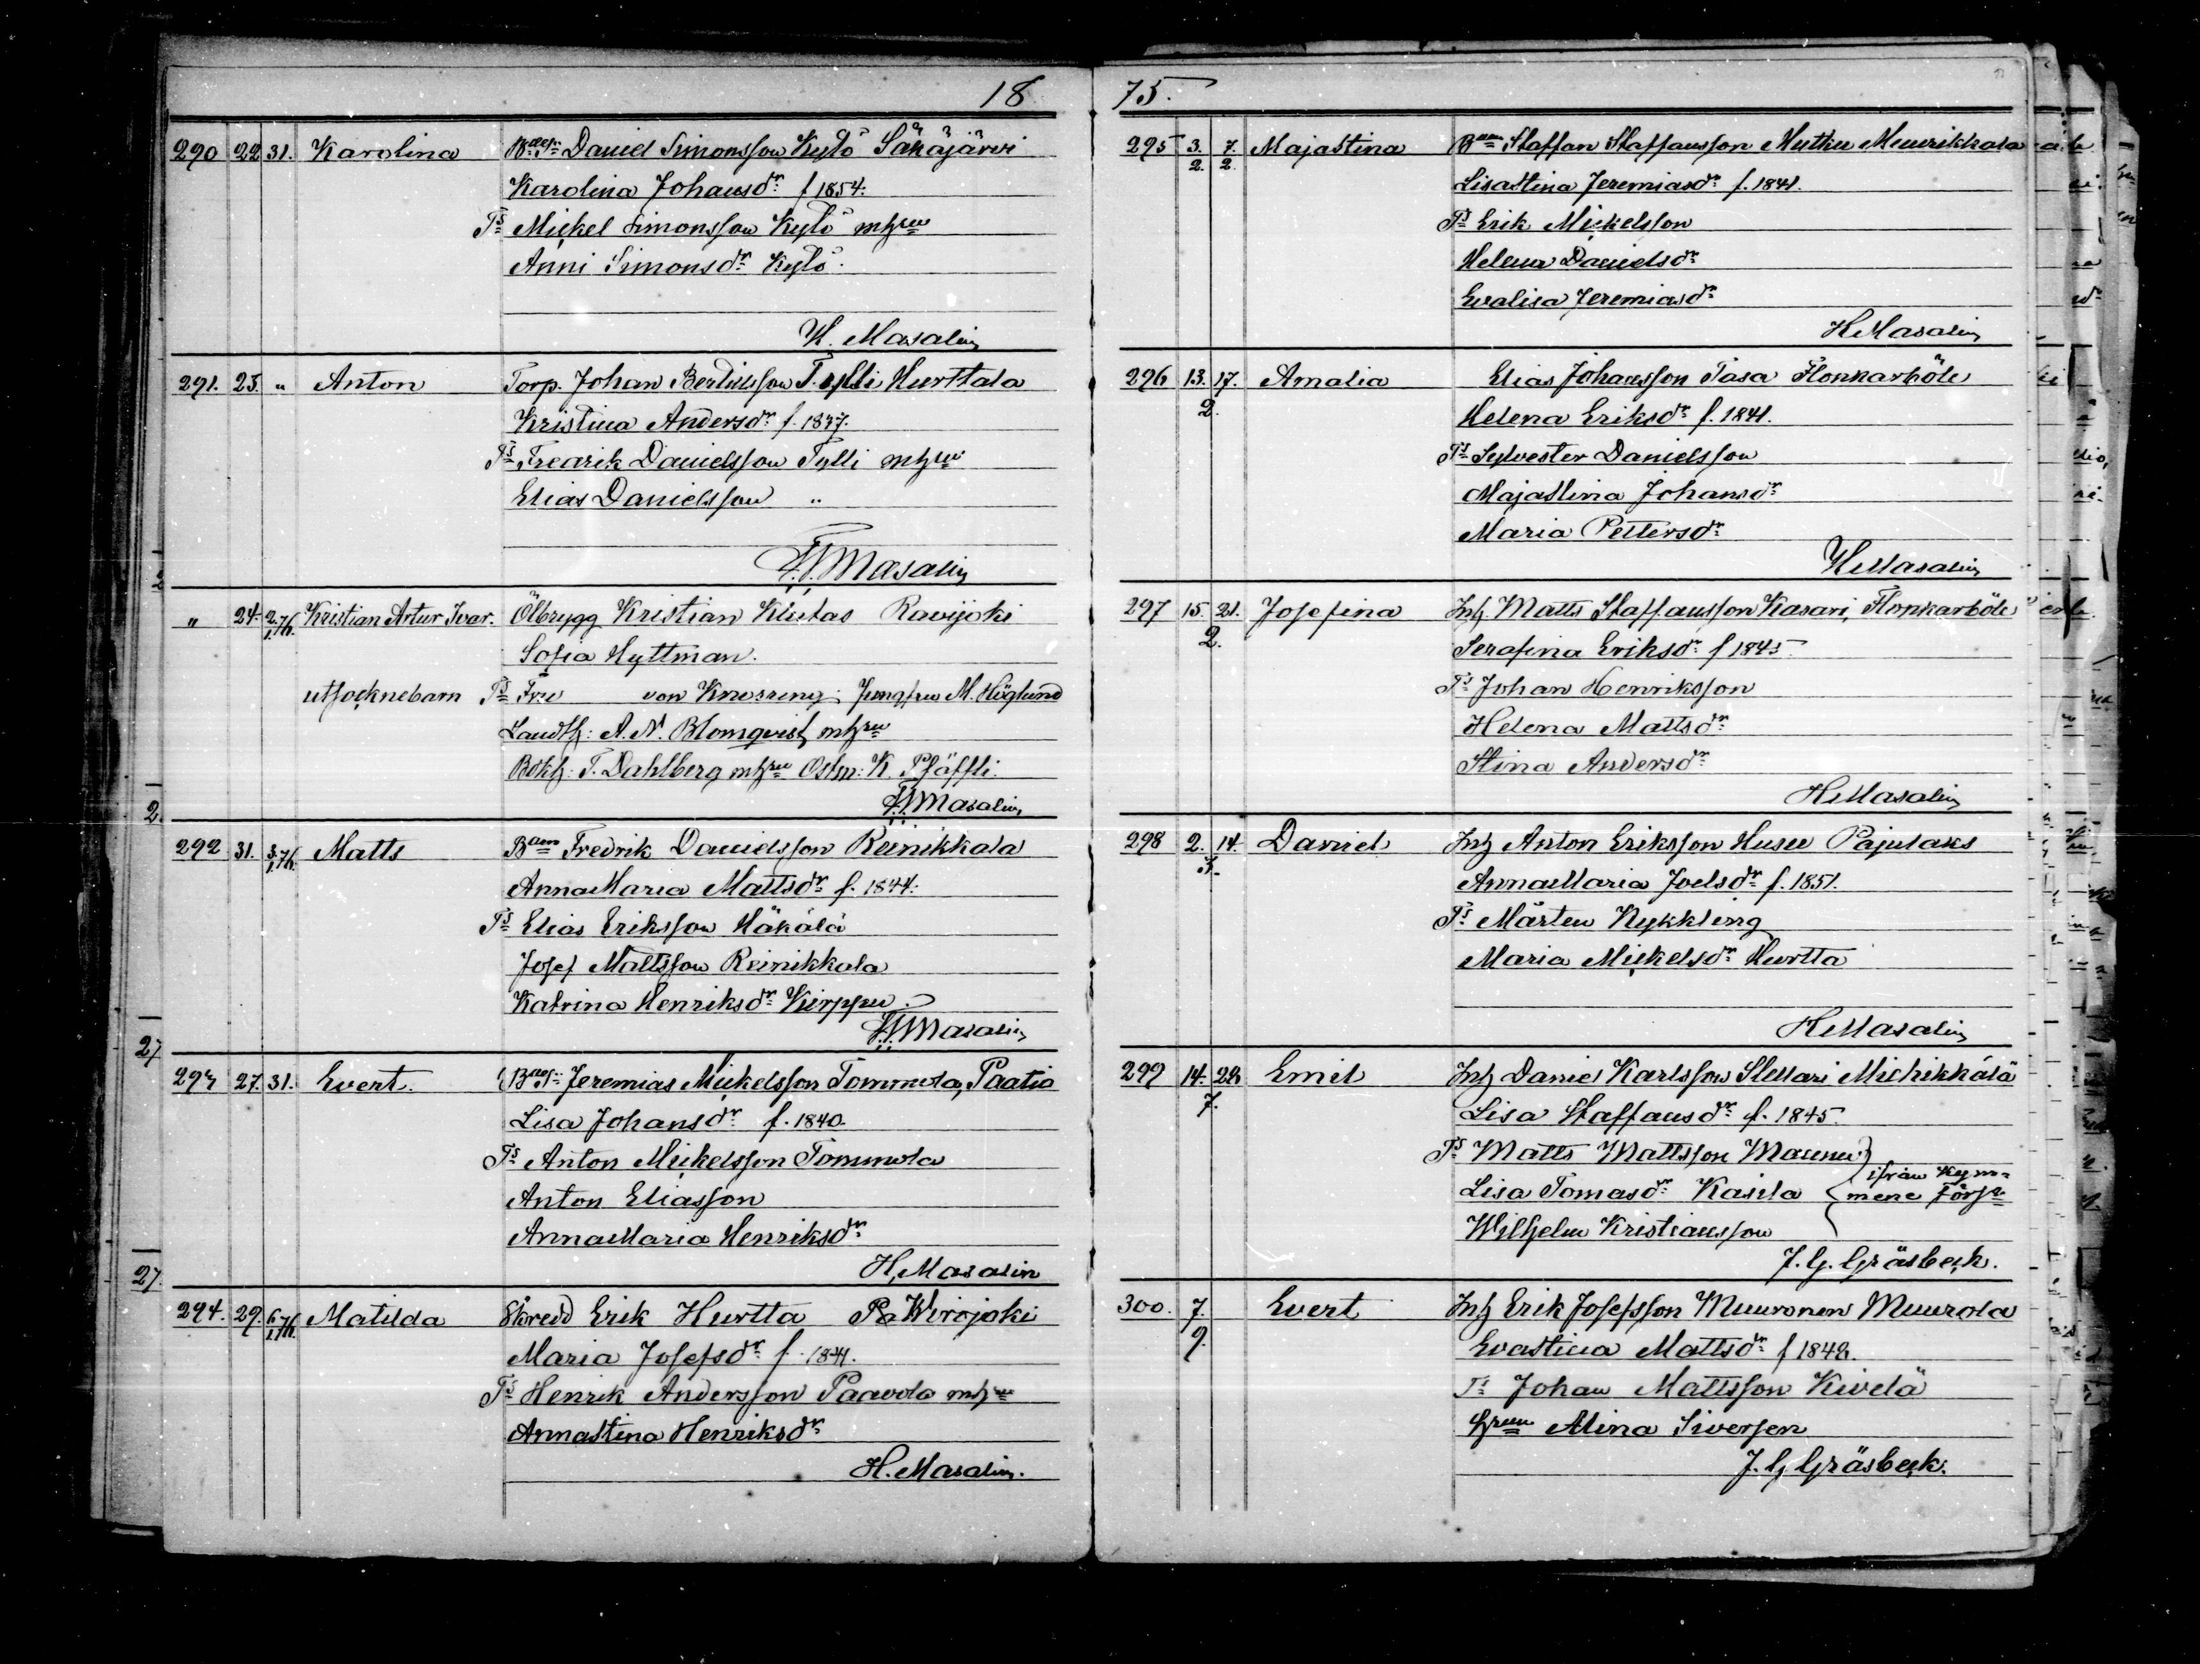 18
290 22 31. Karolina Bdes: Daniel Simonsson Kylö Säkäjärvi
Karolina Johansdr f 1854.
Ts Mickel Simonsson Kylö mhru
Anni Simonsdr Kylö.
H. Masalin
291. 23. " Anton Torp. Johan Bertilsson Tylli Hurttala
Kristina Andersdr f. 1837.
Ts Fredrik Danielsson Tylli mhru
Elias Danielsson "
H. Masalin
2
" 24. 2/1.76. Kristian Artur Ivar. Ölbrygg Kristian Klutas Ravijoki
Sofia Hyttman.
utsocknebarn Ts Fru von Knorring; Jungfru M. Höglund
Landth: A. N. Blomqvist, mhru
Bokh: T. Dahlberg mhru Osk: K. Pfäffli.
H. Masalin
2.
292 31. 3/1.76. Matts Bden Fredrik Danielsson Reinikkala
AnnaMaria Mattsdr f. 1844.
Ts Elias Eriksson Häkälä
Josef Mattsson Reinikkala
Katrina Henriksdr Kirppu
H. Masalin
27
293 27. 31. Evert. Bdes: Jeremias Mickelsson Tommola, Paatio
Lisa Johansdr f. 1840.
Ts Anton Mickelsson Tommola
Anton Eliasson
AnnaMaria Henriksdr
H. Masalin
27.
294. 29. 6/1.76. Matilda Skredd Erik Hurtta Pa Wirojoki
Maria Josefsdr f. 1841.
Ts Henrik Andersson Paavola mhru
Annastina Henriksdr
H. Masalin.
75.
295 3/2. 7/2. Majastina Bden Staffan Staffansson Muthu Muurikkala
Lisastina Jeremiasdr f. 1841.
Ts Erik Mickelsson
Helena Danielsdr
Evalisa Jeremiasdr
H Masalin
296 13. 17. 2. Amalia Elias Johansson Tasa Flonkarböle
Helena Eriksdr f. 1841.
Ts Sylvester Danielsson
Majastina Johansdr
Maria Pettersdr
H Masalin
297 15. 21. 2. Josefina Inh. Matts Staffansson Kasari, Flonkarböle
Serafina Eriksdr f 1845
Ts Johan Henriksson
Helena Mattsdr
Stina Andersdr
H Masalin
298 2. 14. 3. Daniel Inh Anton Eriksson Husu Pajulaks
AnnaMaria Joelsdr f. 1851.
Ts Mårten Nykkling
Maria Mickelsdr Hurtta
H Masalin
299 14. 22. 7. Emil Inh Daniel Karlsson Stellari Miehikkälä
Lisa Staffansdr f. 1845.
Ts Matts Mattsson Maunu
Lisa Tomasdr Kasila ifrån Kymmene Förs:
Wilhelm Kristiansson
J. G. Gräsbeck.
300. 7. 9. Evert Inh Erik Josefsson Muuronen Muurola
Evastina Mattsdr f 1842.
Ts Johan Mattsson Kivelä
Hrun Alina Siversen
J. G. Gräsbeck.